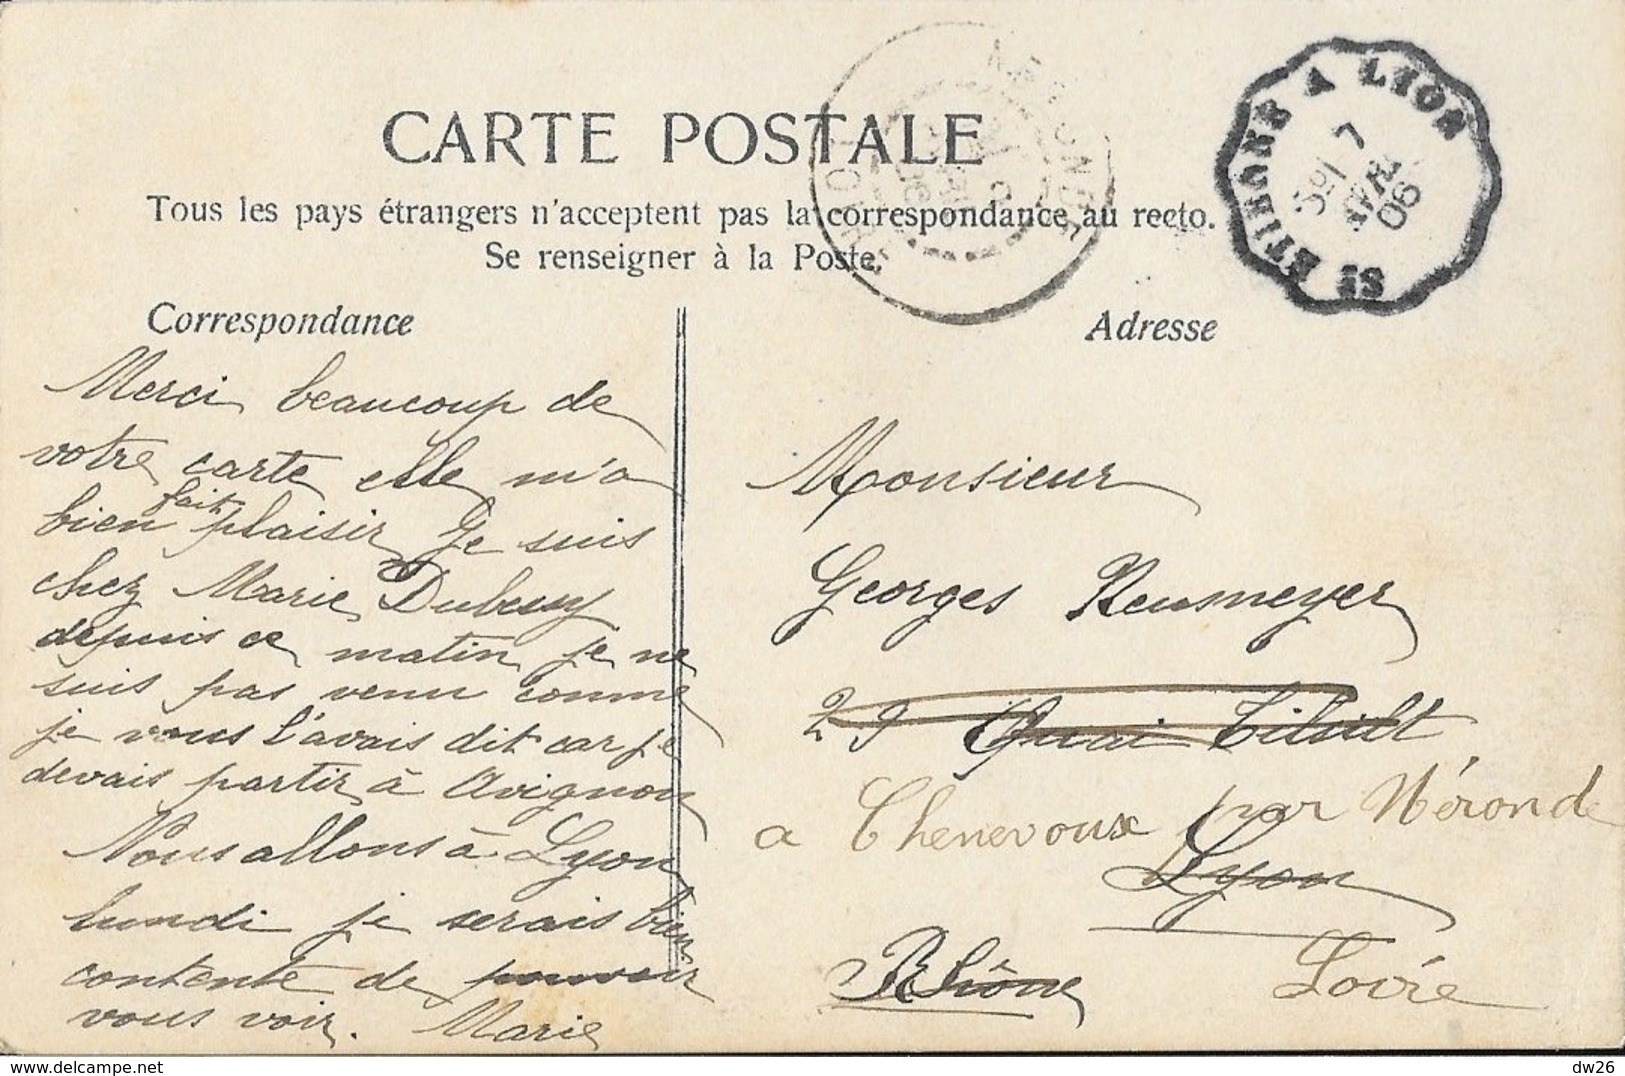 CARTE POSTALE
Tous les pays étrangers n'acceptent pas la correspondance au recto.
Se renseigner à la Poste.
ST ETIENNE A LYON
7
AVRIL
06
NERONDE
LOIRE
Correspondance
Merci beaucoup de
votre carte elle m'a
bien fait plaisir Je suis
chez Marie
depuis ce matin je ne
suis pas venu comme
je vous l'avais dit car je
devais partir à Avignon
Nous allons à Lyon
lundi je serais bien
contente de pouvoir
vous voir. Marie
Adresse
Monsieur
Georges
Quai
a Chenevoux par Néronde
Lyon
Rhône
Loire
delcampe.net
dw26